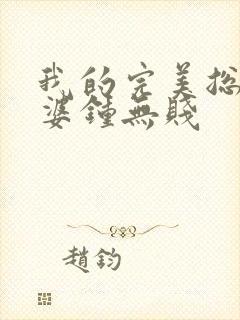 我的完美总
婆鍾無賤
趙鈞